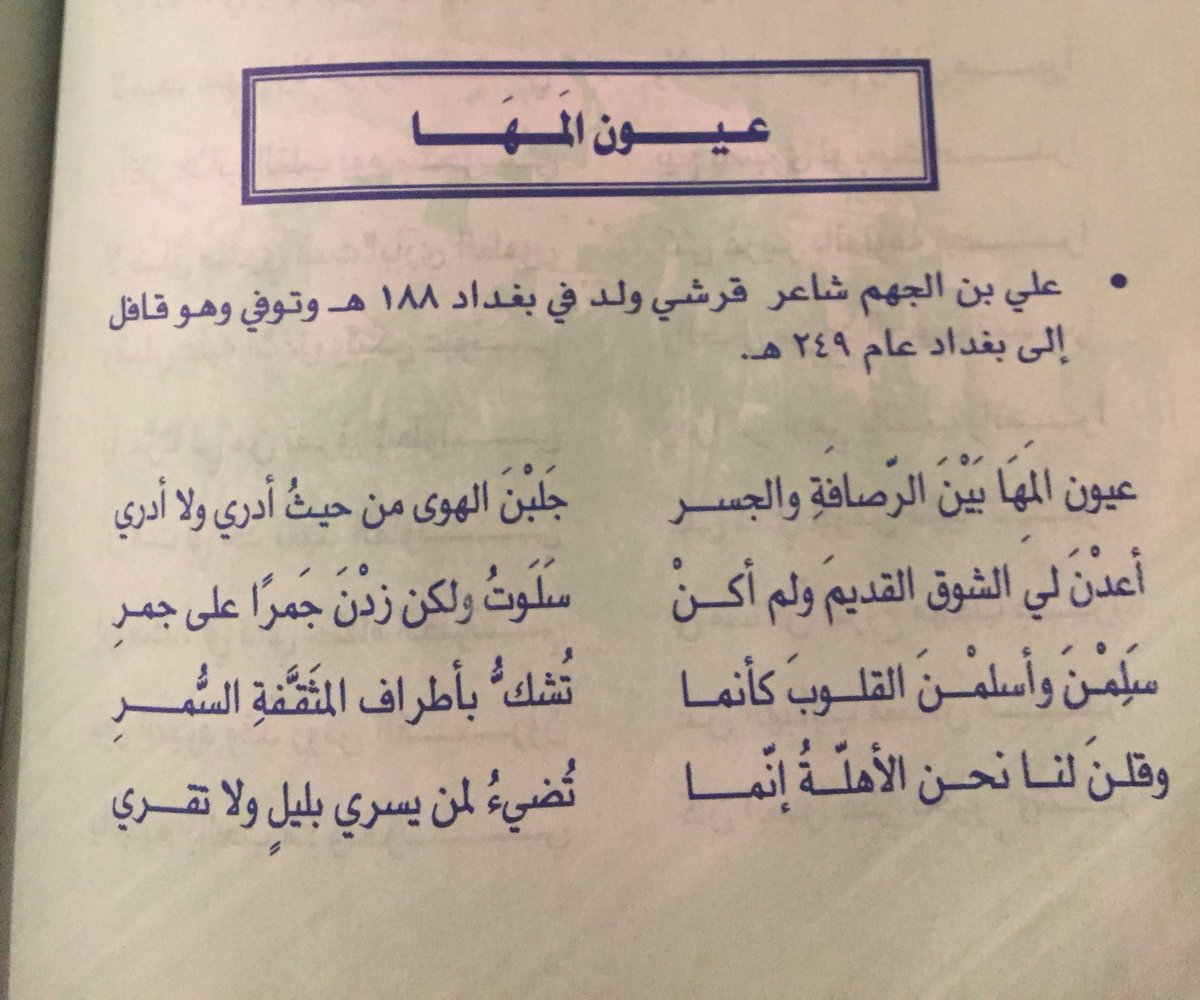 عيـــون المَـهَـــا
• علي بن الجهم شاعر قرشي ولد في بغداد ١٨٨ هـ وتوفي وهو قافل
إلى بغداد عام ٢٤٩ هـ.
عيون المَهَا بَيْنَ الرّصافَةِ والجسـر جَلبْنَ الهوى من حيثُ أدري ولا أدري
أعدْنَ لي الشوق القديمَ ولم أكـنْ سَلَوتُ ولكن زدْنَ جَمرًا على جمرِ
سَلِمْنَ وأسلمْـنَ القلـوبَ كأنمـا تُشكُّ بأطراف المثَقَّفةِ السُّمـرِ
وقلنَ لنـا نحـن الأهلّـةُ إنّمـا تُضيءُ لمن يسري بليلٍ ولا تقـري